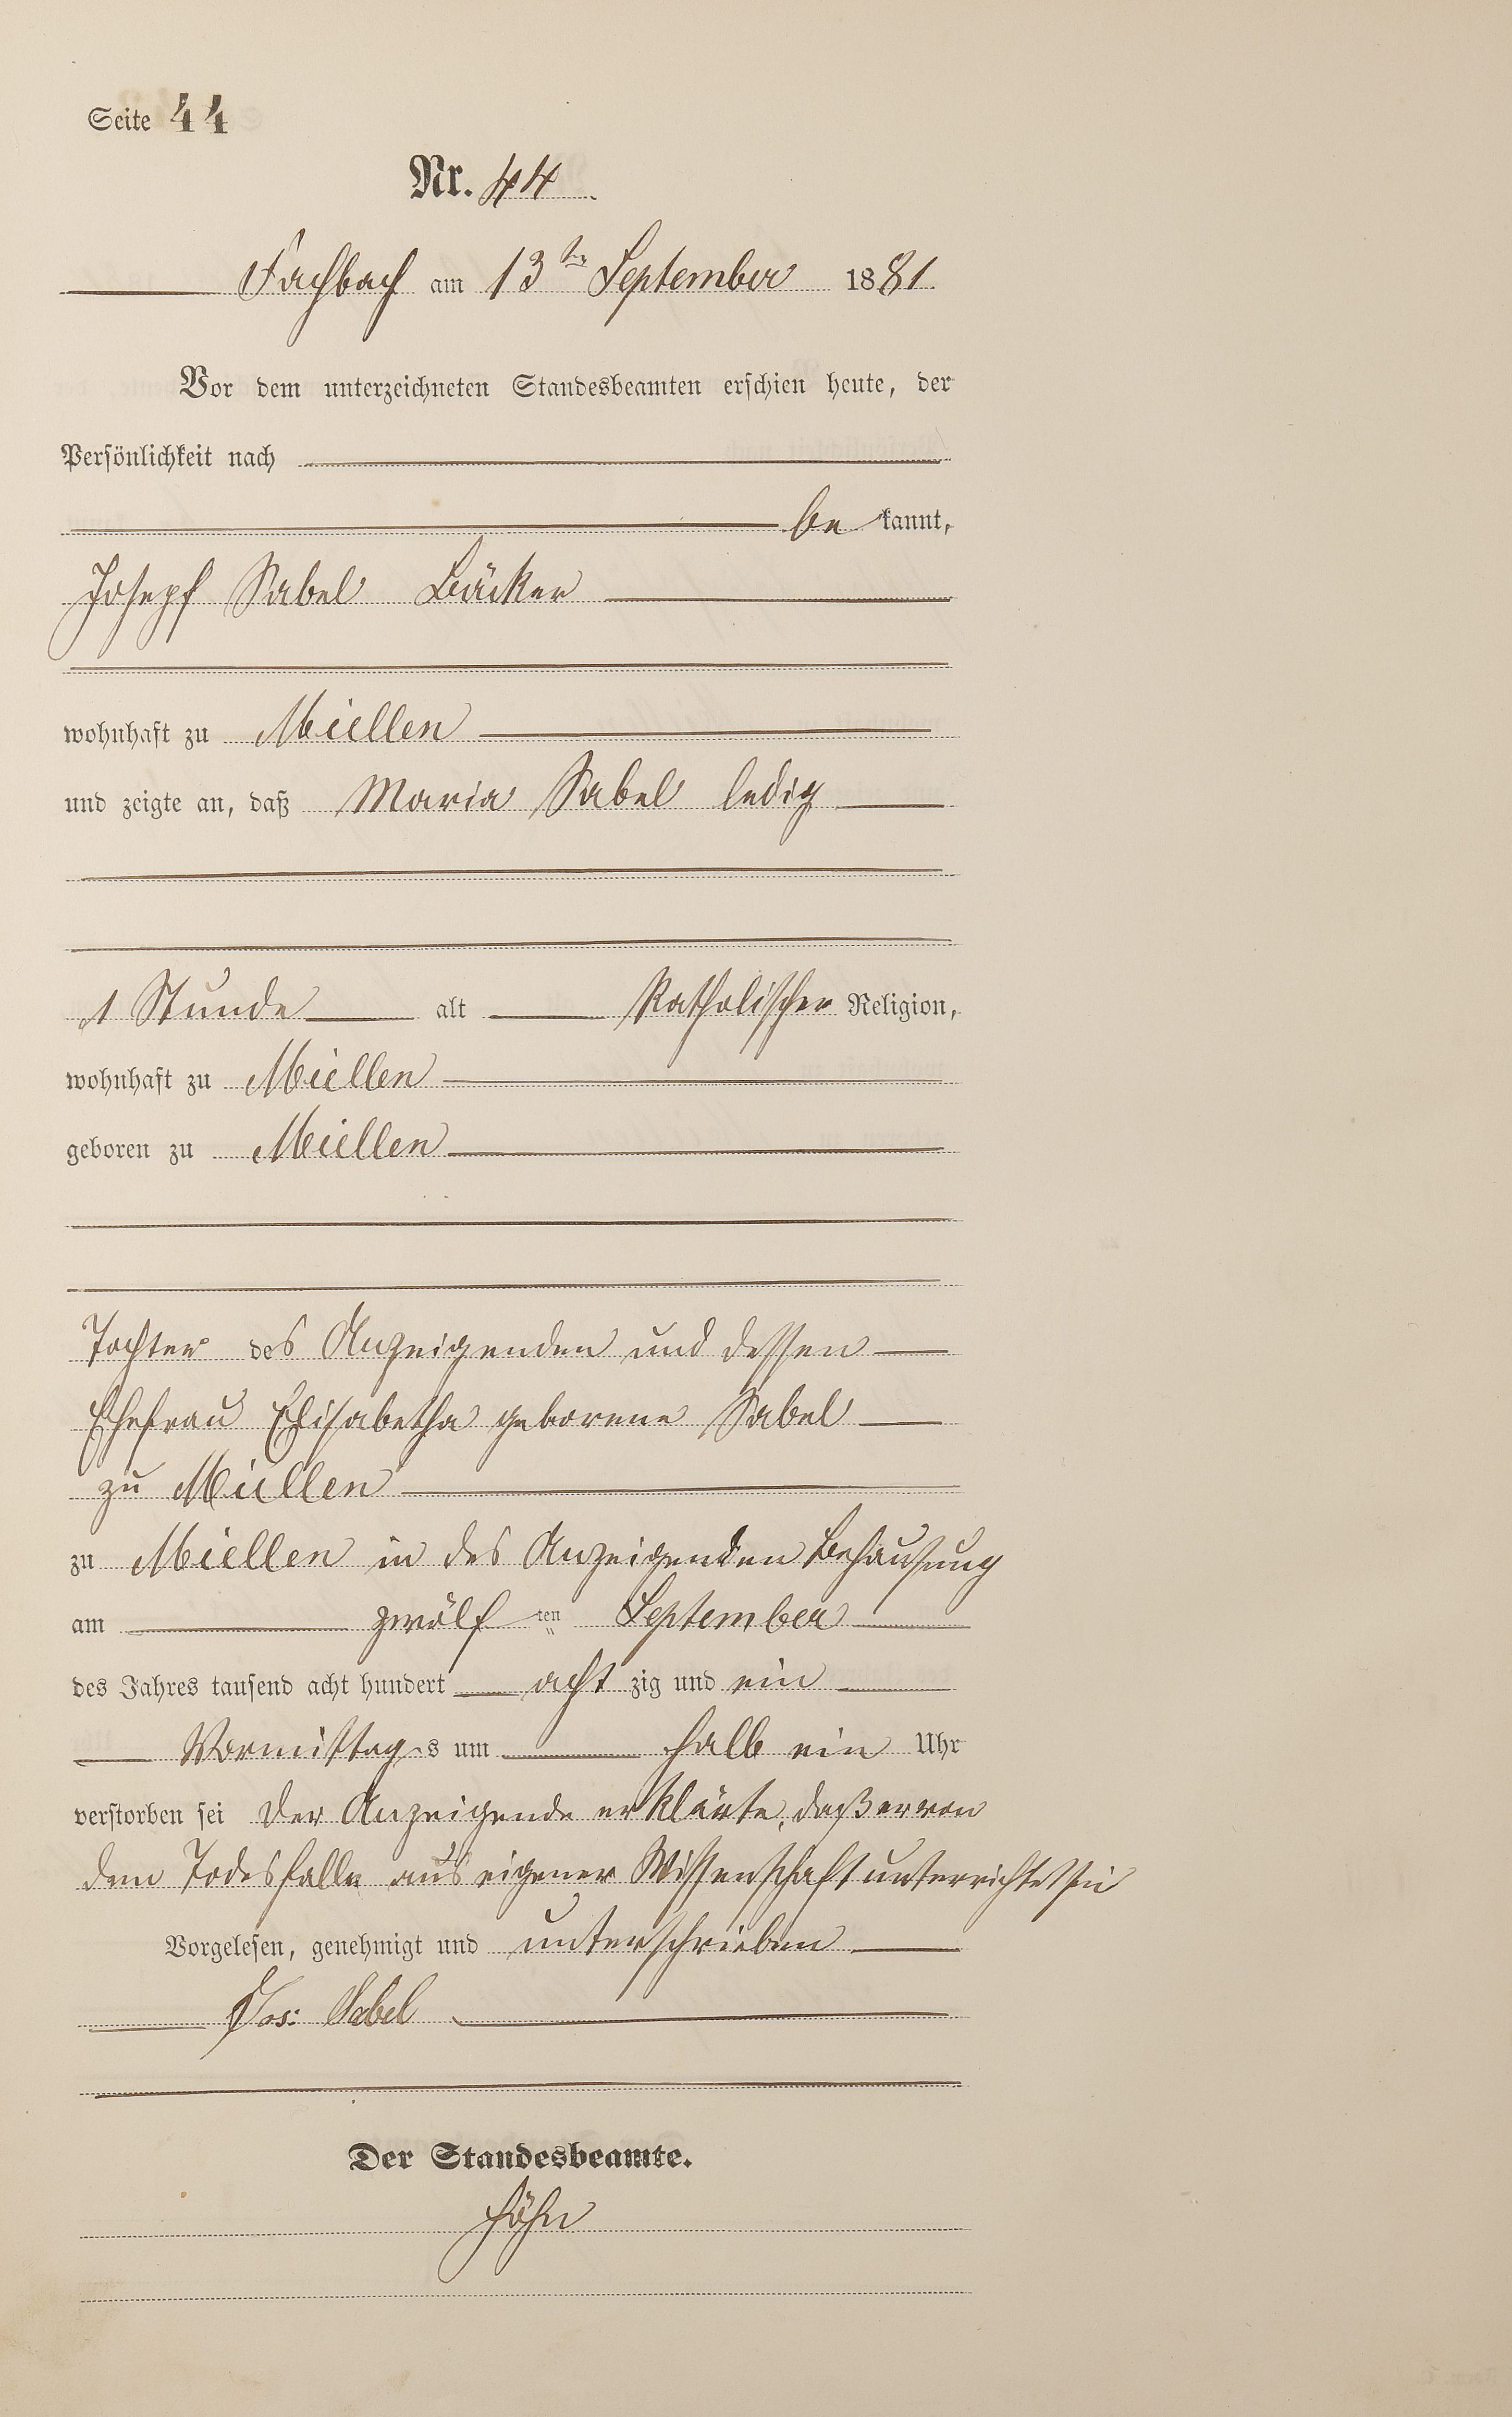 Seite 44
Nr. 44
Fachbach am 13ten September 1881.
Vor dem unterzeichneten Standesbeamten erschien heute, der
Persönlichkeit nach
be kannt,
Joseph Sabel Bäcker
wohnhaft zu Miellen
und zeigte an, daß Maria Sabel ledig
1 Stunde alt Katholischer Religion,
wohnhaft zu Miellen
geboren zu Miellen
Tochter des Anzeigenden und dessen
Ehefrau Elisabetha geborene Sabel
zu Miellen
zu Miellen in des Anzeigenden Behausung
am zwölf ten September
des Jahres tausend acht hundert acht zig und ein
Vormittag s um halb ein Uhr
verstorben sei Der Anzeigende erklärte, daß er von
dem Todesfalle aus eigener Wissenschaft unterrichtet sei
Vorgelesen, genehmigt und unterschrieben
Jos: Sabel
Der Standesbeamte.
Höhn